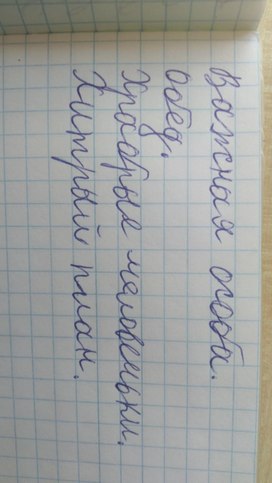 Важная особа.
Обед.
Храбрые человечки.
Хитрый план.